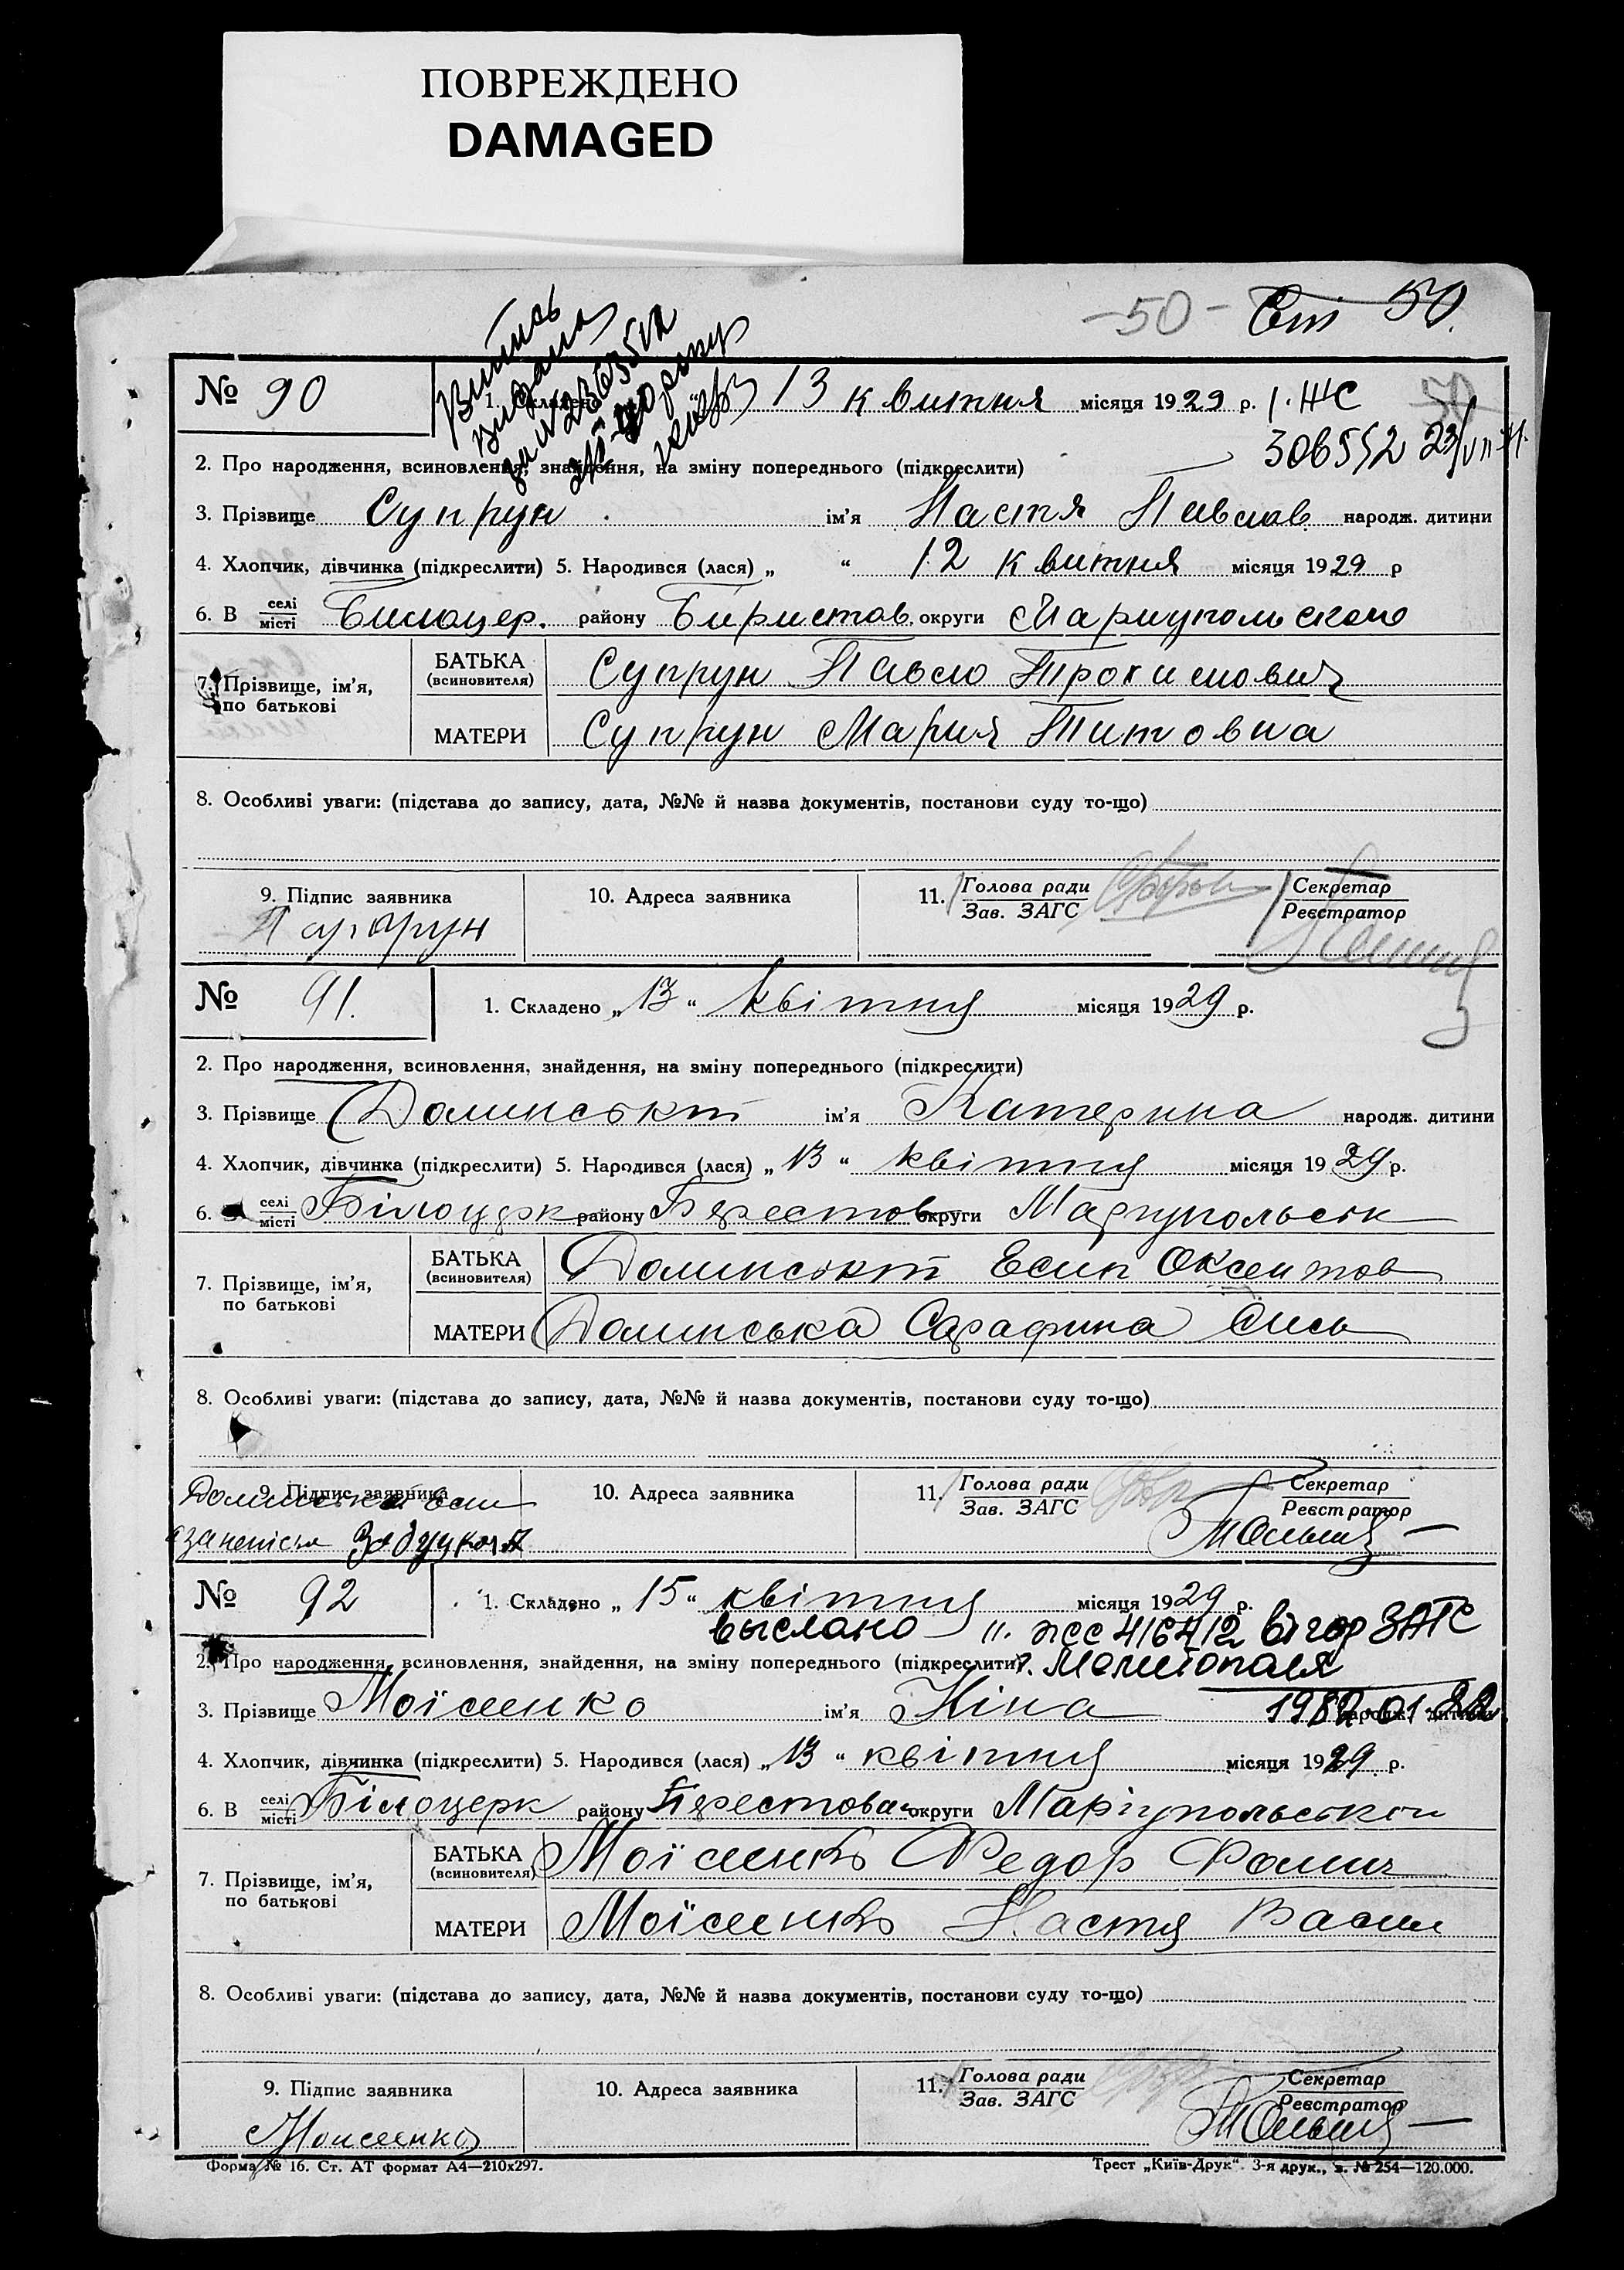 ПОВРЕЖДЕНО
DAMAGED
-50- Ст 50.
№ 90 1. Складено 13 квитня місяця 1929 р. 1. ЖС
306552
2. Про народження, всиновлення, знайдення, на зміну попереднього (підкреслити)
3. Прізвище Супрун ім'я Настя Павлов народж. дитини
4. Хлопчик, дівчинка (підкреслити) 5. Народився (лася) „ “ 12 квитня місяця 1929 р
6. В селі/місті Билоцер. району Биристов. округи Мариупольскоо
7. Прізвище, ім'я, по батькові
БАТЬКА (всиновителя) Супрун Павло Трохимович
МАТЕРИ Супрун Мария Титовна
8. Особливі уваги: (підстава до запису, дата, №№ й назва документів, постанови суду то-що)
9. Підпис заявника 10. Адреса заявника 11. Голова ради / Зав. ЗАГС Секретар / Реєстратор
№ 91. 1. Складено „13“ квітня місяця 1929 р.
2. Про народження, всиновлення, знайдення, на зміну попереднього (підкреслити)
3. Прізвище Долинські ім'я Катерина народж. дитини
4. Хлопчик, дівчинка (підкреслити) 5. Народився (лася) „13“ квітня місяця 1929 р.
6. селі/місті Білоцерк району Берестов округи Маріупольськ
7. Прізвище, ім'я, по батькові
БАТЬКА (всиновителя) Долинські Есип Оксентов
МАТЕРИ Долинська Сарафина
8. Особливі уваги: (підстава до запису, дата, №№ й назва документів, постанови суду то-що)
9. Підпис заявника 10. Адреса заявника 11. Голова ради / Зав. ЗАГС Секретар / Реєстратор
№ 92 1. Складено „15“ квітня місяця 1929 р.
выслано II. жсс 416412 в гор ЗАГС
2. Про народження, всиновлення, знайдення, на зміну попереднього (підкреслити) г. Мелитополя
3. Прізвище Моїсеенко ім'я Ніна 1982.01.22. народж. дитини
4. Хлопчик, дівчинка (підкреслити) 5. Народився (лася) „13“ квітня місяця 1929 р.
6. В селі/місті Білоцерк району Берестован округи Маріупольськои
7. Прізвище, ім'я, по батькові
БАТЬКА (всиновителя) Моїсеенко Федор Фомич
МАТЕРИ Моїсеенко Настя Васил
8. Особливі уваги: (підстава до запису, дата, №№ й назва документів, постанови суду то-що)
9. Підпис заявника 10. Адреса заявника 11. Голова ради / Зав. ЗАГС Секретар / Реєстратор
Моисеенко
Форма № 16. Ст. АТ формат А4—210х297. Трест „Київ-Друк“. 3-я друк., з. № 254—120.000.